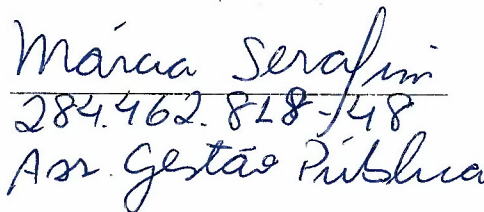 Márcia Serafim
284.462.818-48
Ass. Gestão Pública